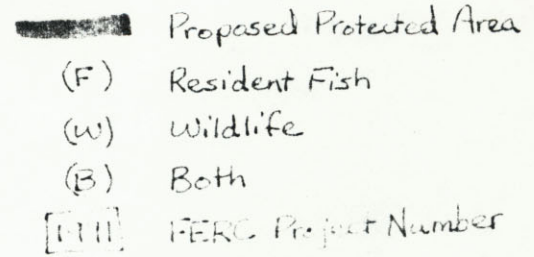 Proposed Protected Area
(F) Resident Fish
(W) Wildlife
(B) Both
[1111] FERC Project Number